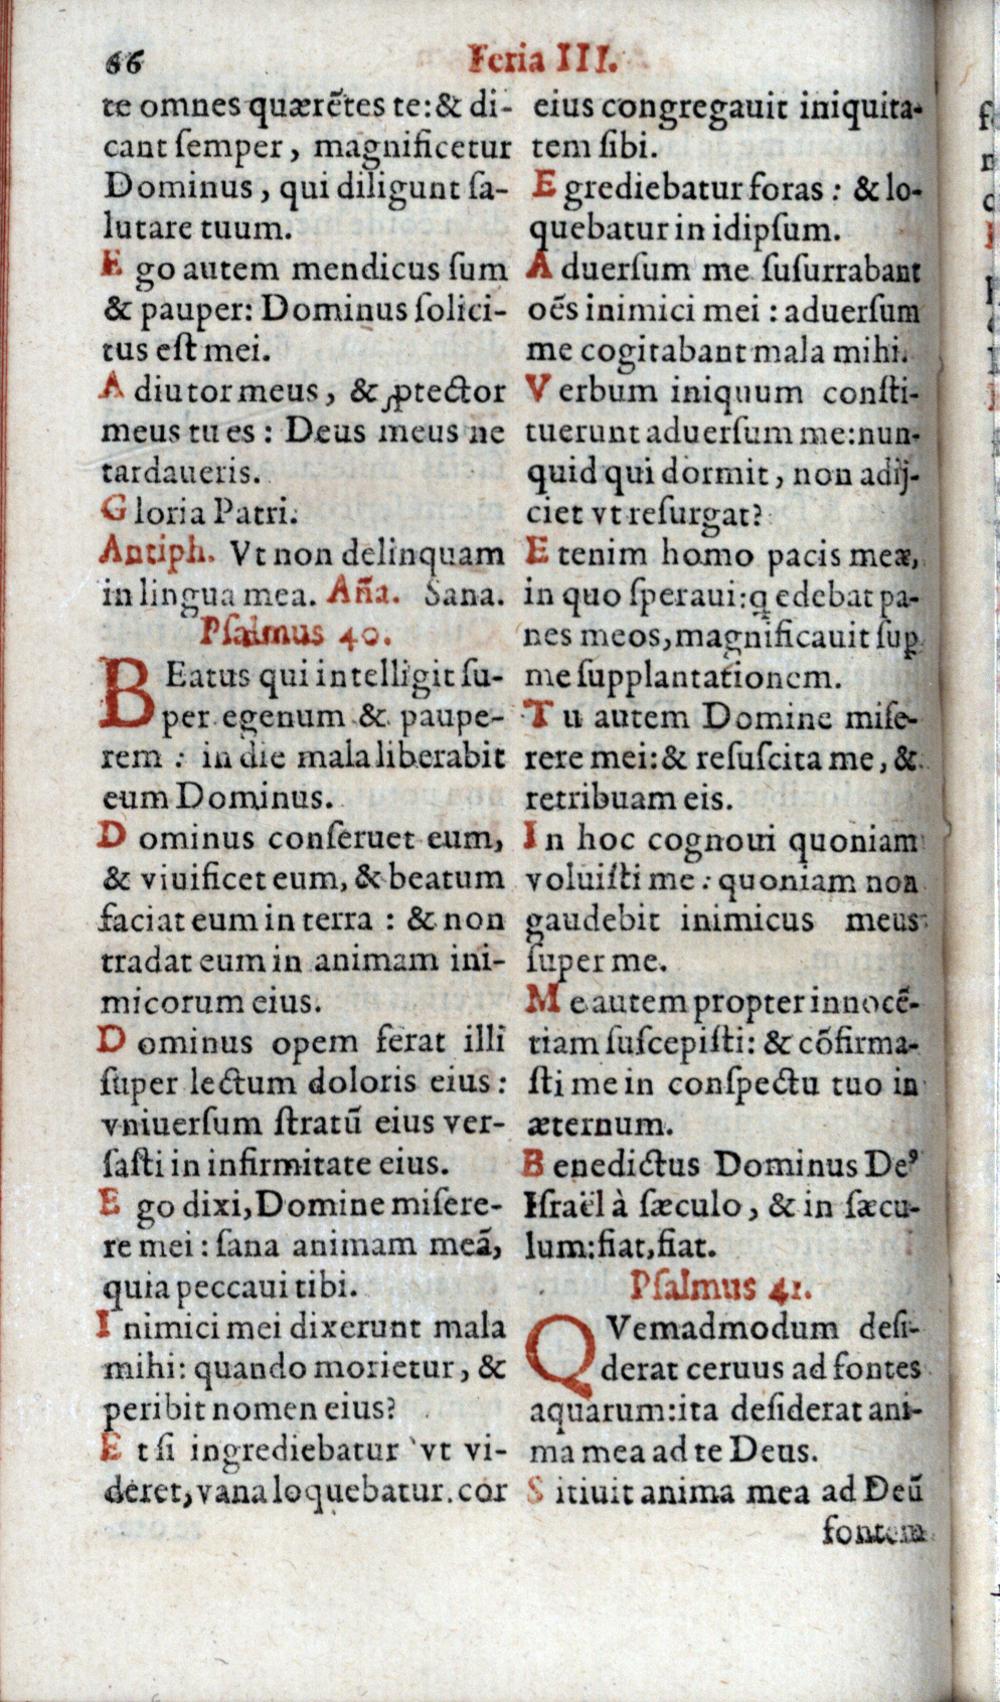 66
Feria III.
te omnes quærẽtes te:& di-
cant ſemper, magnificetur
Dominus, qui diligunt ſa-
lutare tuum.
E go autem mendicus ſum
& pauper: Dominus ſolici-
tus eſt mei.
A diutor meus, & ꝓtector
meus tu es: Deus meus ne
tardaueris.
G loria Patri.
Antiph. Vt non delinquam
in lingua mea. Aña. Sana.
Pſalmus 40.
BEatus qui intelligit ſu-
per egenum & paupe-
rem : in die mala liberabit
eum Dominus.
D ominus conſeruet eum,
& viuificet eum, & beatum
faciat eum in terra : & non
tradat eum in animam ini-
micorum eius.
D ominus opem ferat illi
ſuper lectum doloris eius:
vniuerſum ſtratũ eius ver-
ſaſti in infirmitate eius.
E go dixi, Domine miſere-
re mei : ſana animam meã,
quia peccaui tibi.
I nimici mei dixerunt mala
mihi: quando morietur, &
peribit nomen eius?
E t ſi ingrediebatur vt vi-
deret, vana loquebatur. cor
eius congregauit iniquita-
tem ſibi.
E grediebatur foras : & lo-
quebatur in idipſum.
A duerſum me ſuſurrabant
oẽs inimici mei : aduerſum
me cogitabant mala mihi.
V erbum iniquum conſti-
tuerunt aduerſum me:nun-
quid qui dormit, non adij-
ciet vt reſurgat?
E tenim homo pacis meæ,
in quo ſperaui:ꝗ edebat pa-
nes meos, magnificauit ſuꝑ
me ſupplantationem.
T u autem Domine miſe-
rere mei:& reſuſcita me, &
retribuam eis.
I n hoc cognoui quoniam
voluiſti me : quoniam non
gaudebit inimicus meus
ſuper me.
M e autem propter innocẽ-
tiam ſuſcepiſti: & cõfirma-
ſti me in conſpectu tuo in
æternum.
B enedictus Dominus Deꝰ
Iſraël à ſæculo, & in ſæcu-
lum:fiat, fiat.
Pſalmus 41.
QVemadmodum deſi-
derat ceruus ad fontes
aquarum:ita deſiderat ani-
ma mea ad te Deus.
S itiuit anima mea ad Deũ
fontem